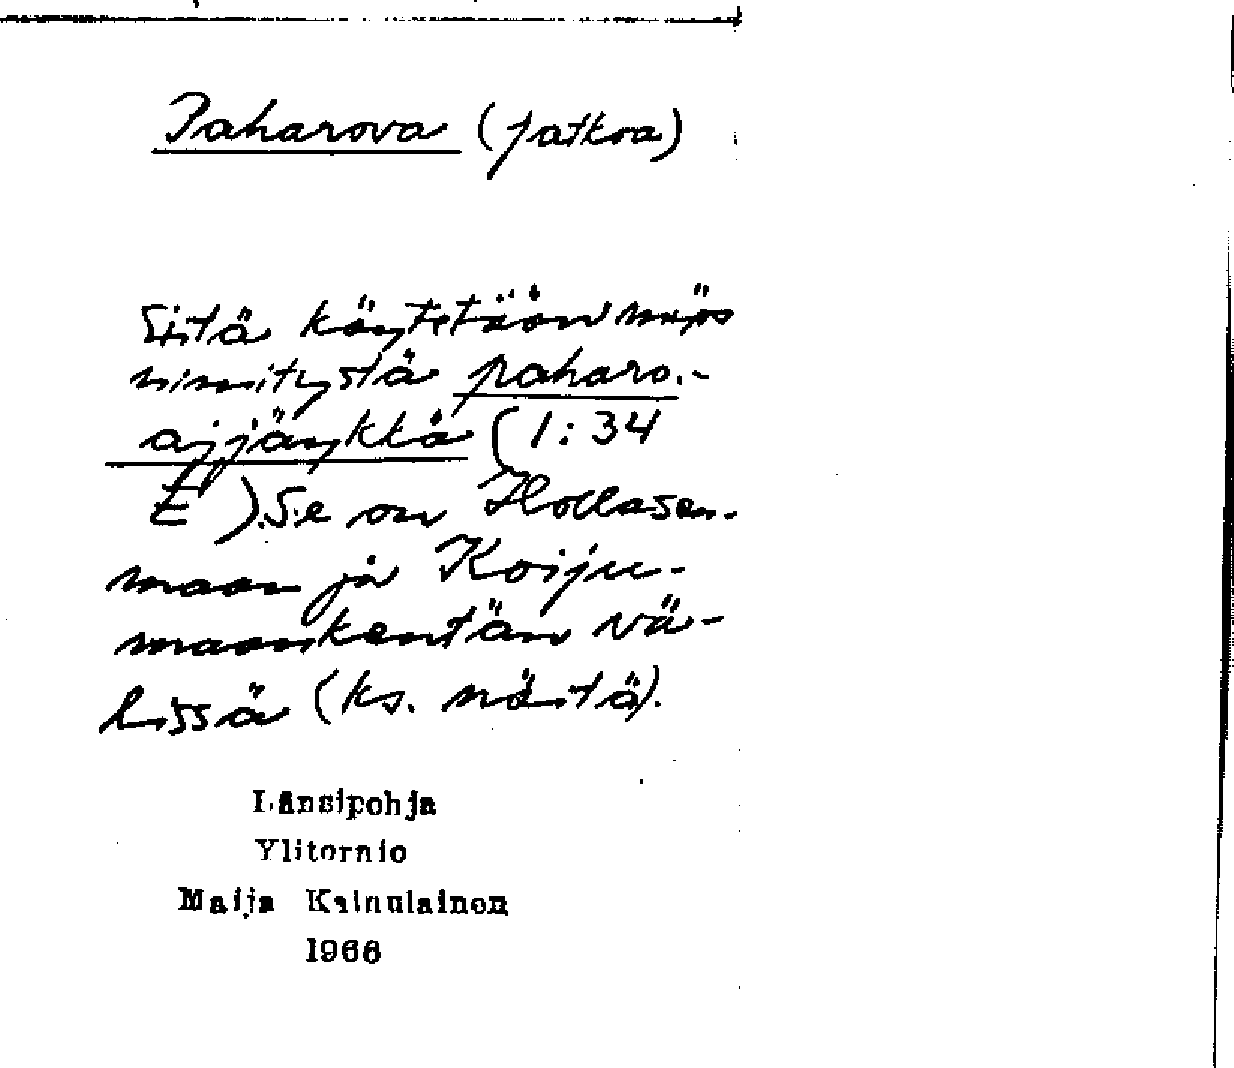 Paharova (jatkoa)
Siitä käytetään myös
nimitystä paharo.-
ajjänkkä (1:34
E ). Se on Hollasen-
maan ja Koiju-
maankentän vä-
lissä (ks. näitä).
Länsipohja
Ylitornio
Maija Kainulainen
1966